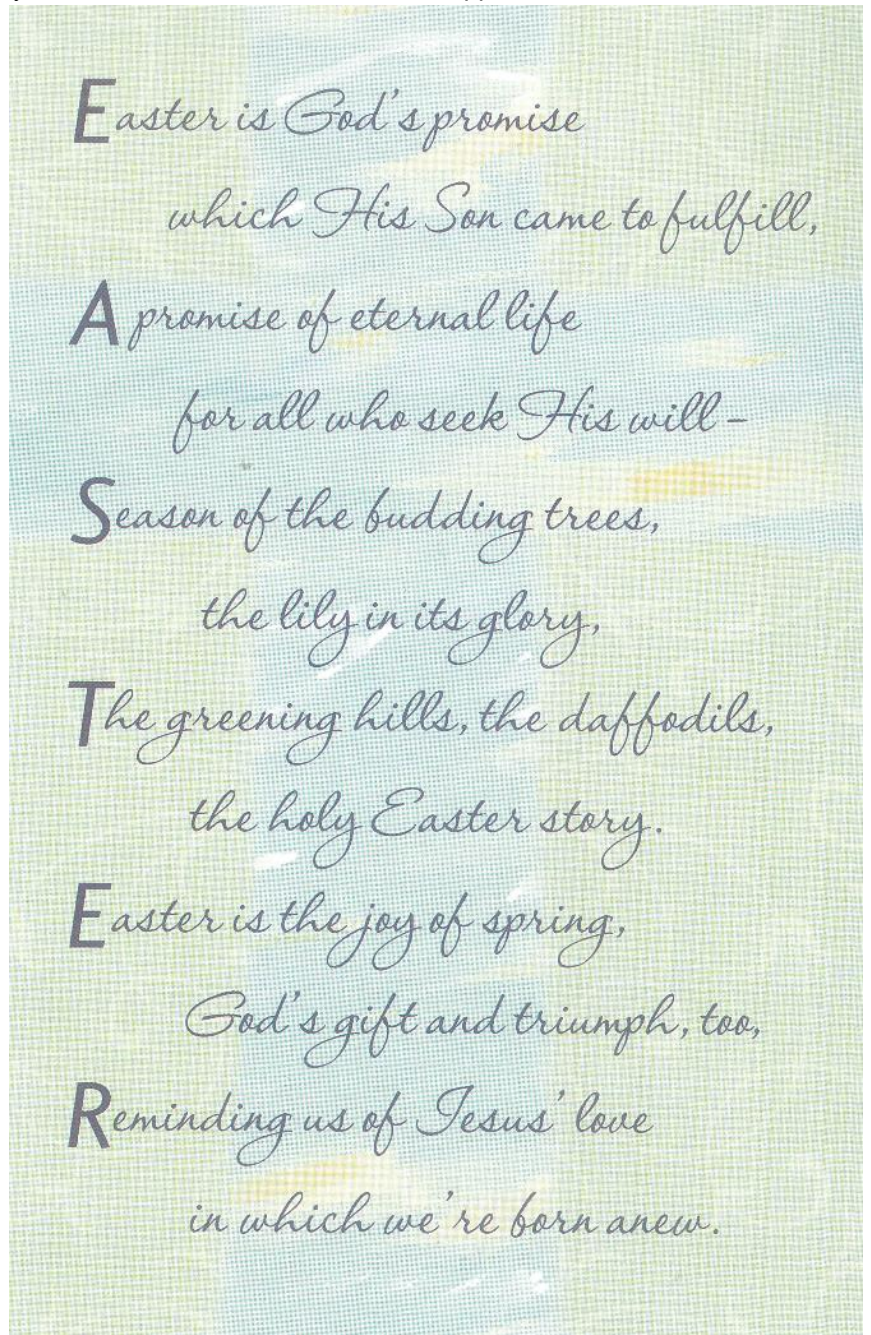 Easter is God's promise
which His Son came to fulfill,
A promise of eternal life
for all who seek His will–
Season of the budding trees,
the lily in its glory,
The greening hills, the daffodils,
the holy Easter story.
Easter is the joy of spring,
God's gift and triumph, too,
Reminding us of Jesus' love
in which we're born anew.